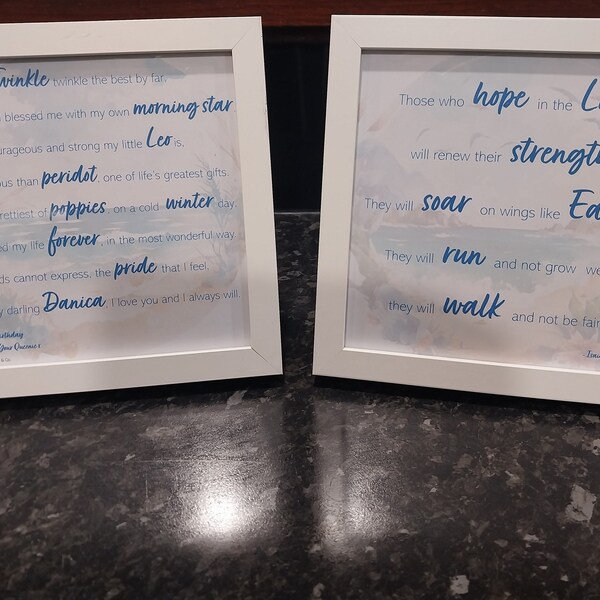 twinkle twinkle the best by far,
blessed me with my own morning star
courageous and strong my little Leo is,
than peridot, one of life's greatest gifts.
prettiest of poppies, on a cold winter day,
my life forever, in the most wonderful way.
cannot express, the pride that I feel,
darling Danica, I love you and I always will.
Those who hope in the
will renew their strength
They will soar on wings like
They will run and not grow
they will walk and not be